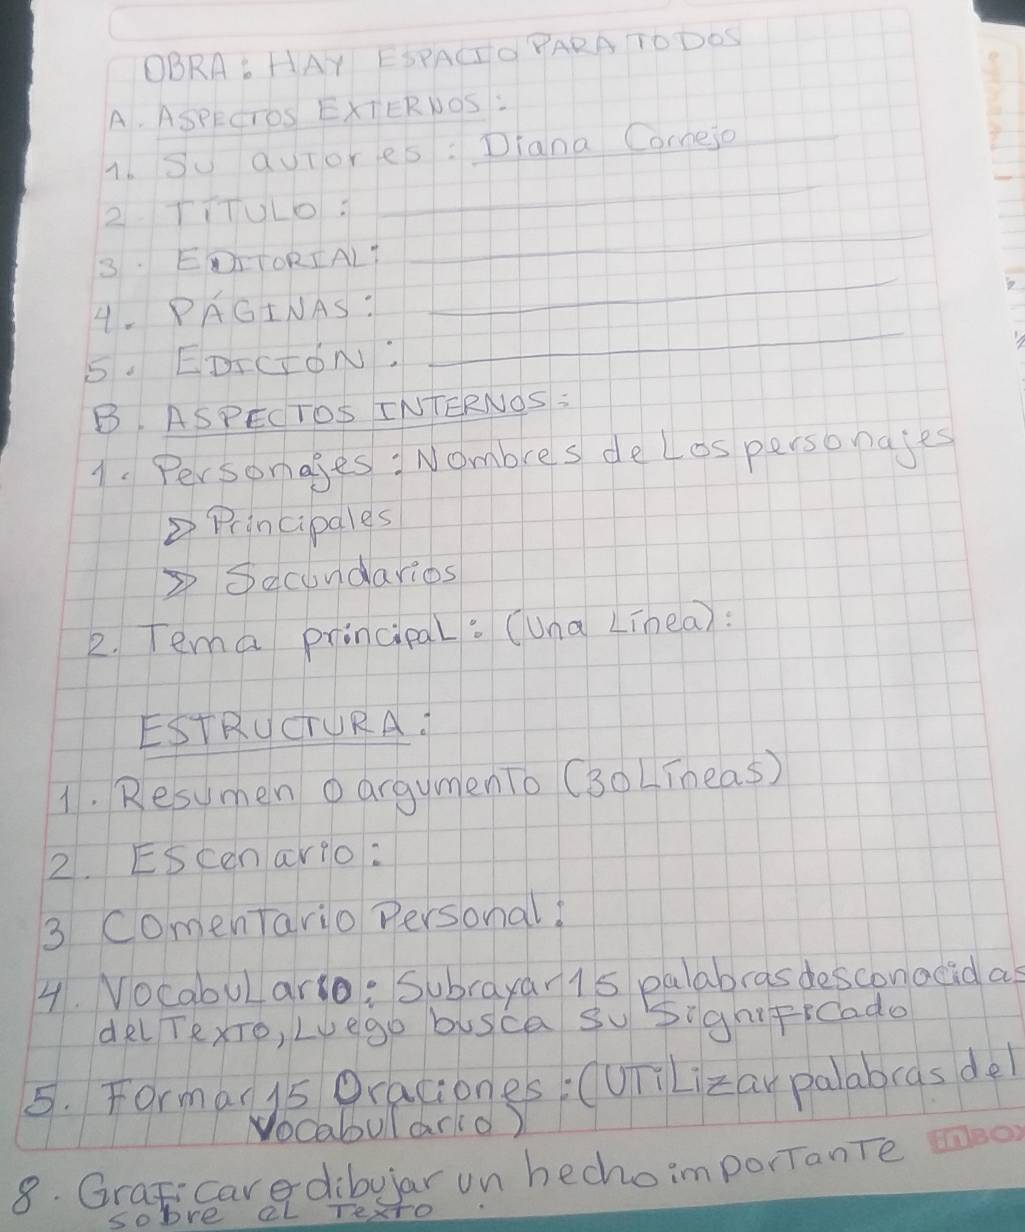 OBRA: HAY ESPACIO PARA TODOS
A. ASPECTOS EXTERNOS:
1. SU autores: Diana Cornejo
2. TÍTULO:
3. EDITORIAL:
4. PÁGINAS:
5. EDICIÓN:
B. ASPECTOS INTERNOS:
1. Personajes: Nombres de Los personajes
Principales
Secundarios
2. Tema principal: (Una Línea):
ESTRUCTURA:
1. Resumen o argumento (30 Líneas)
2. Escenario:
3 Comentario Personal:
4. Vocabulario: Subrayar 15 palabras desconocidas
del Texto, Luego busca su significado
5. Formar 15 Oraciones: (Utilizar palabras del
Vocabulario)
8. Graficar o dibujar un hecho importante
sobre el Texto.